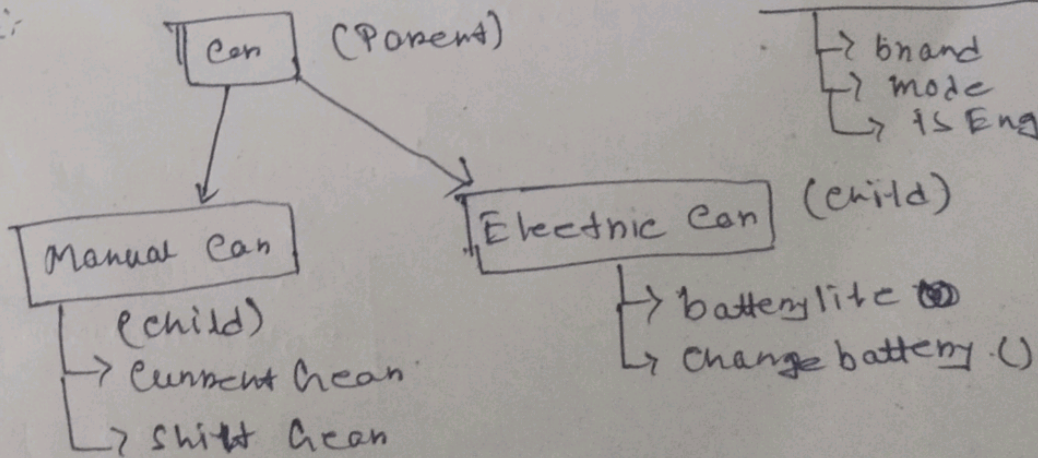 Car (Parent)
brand
mode
is Eng
Manual Car
(child)
Current Gear
Shift Gear
Electric Car (child)
batterylife
Change battery.()